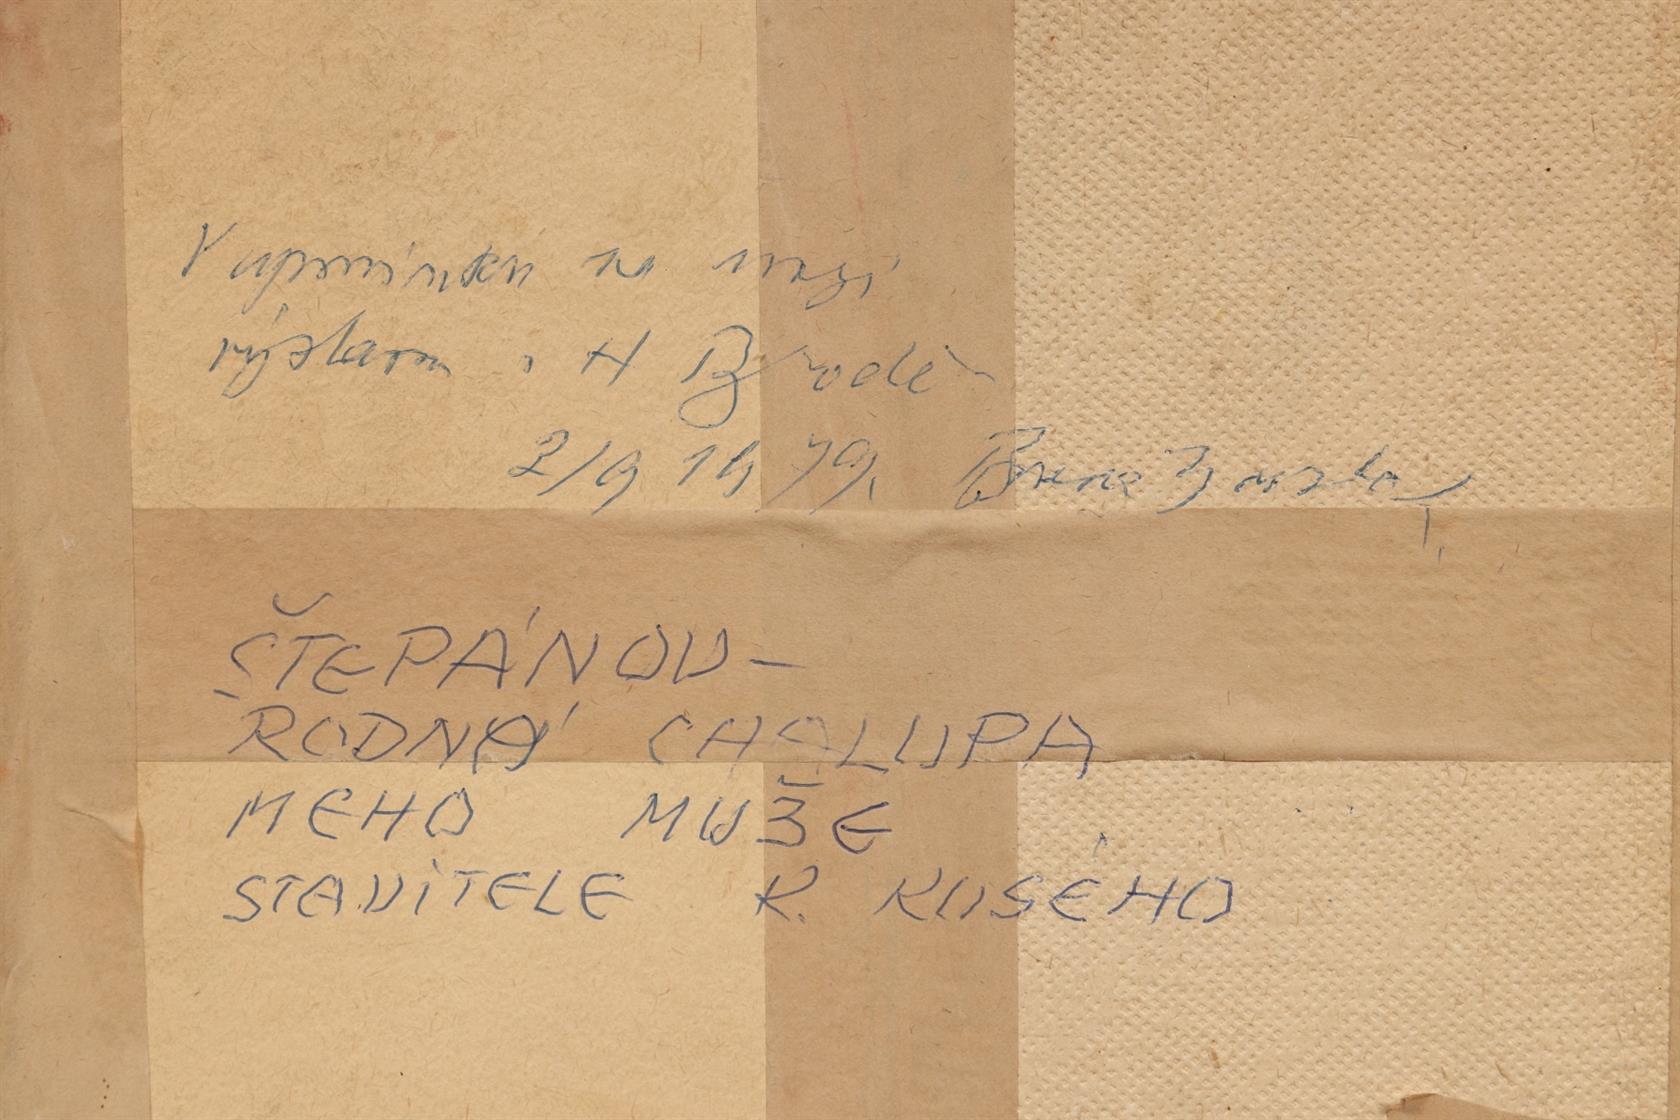 V upomínku na mojí
výstavu v H Brodě
2/9 1979.
ŠTĚPÁNOV-
RODNÁ CHALUPA
MEHO MUŽE
STAVITELE R. RUSÉHO